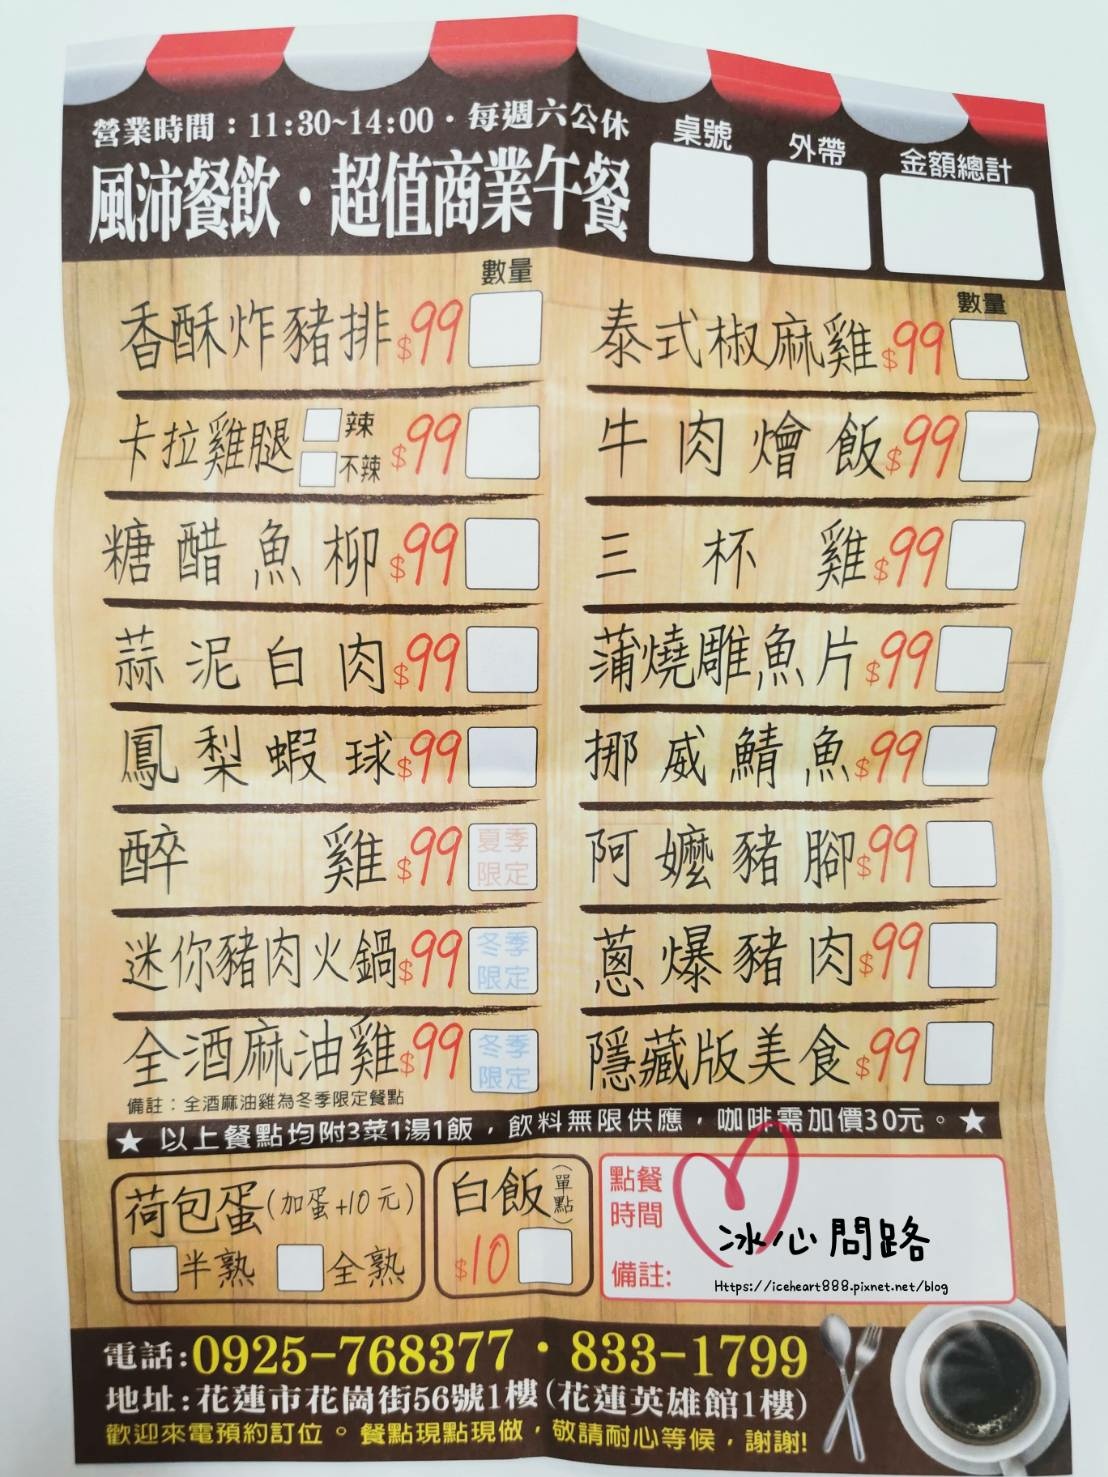 營業時間：11:30~14:00．每週六公休
風沛餐飲．超值商業午餐
桌號
外帶
金額總計
數量
香酥炸豬排 $99
卡拉雞腿 辣 不辣 $99
糖醋魚柳 $99
蒜泥白肉 $99
鳳梨蝦球 $99
醉雞 $99 夏季限定
迷你豬肉火鍋 $99 冬季限定
全酒麻油雞 $99 冬季限定
備註：全酒麻油雞為冬季限定餐點
數量
泰式椒麻雞 $99
牛肉燴飯 $99
三杯雞 $99
蒲燒雕魚片 $99
挪威鯖魚 $99
阿嬤豬腳 $99
蔥爆豬肉 $99
隱藏版美食 $99
★ 以上餐點均附3菜1湯1飯，飲料無限供應，咖啡需加價30元。★
荷包蛋(加蛋+10元)
半熟 全熟
白飯(單點)
$10
點餐時間
備註:
冰心問路
Https://iceheart888.pixnet.net/blog
電話:0925-768377．833-1799
地址:花蓮市花崗街56號1樓(花蓮英雄館1樓)
歡迎來電預約訂位。餐點現點現做，敬請耐心等候，謝謝!